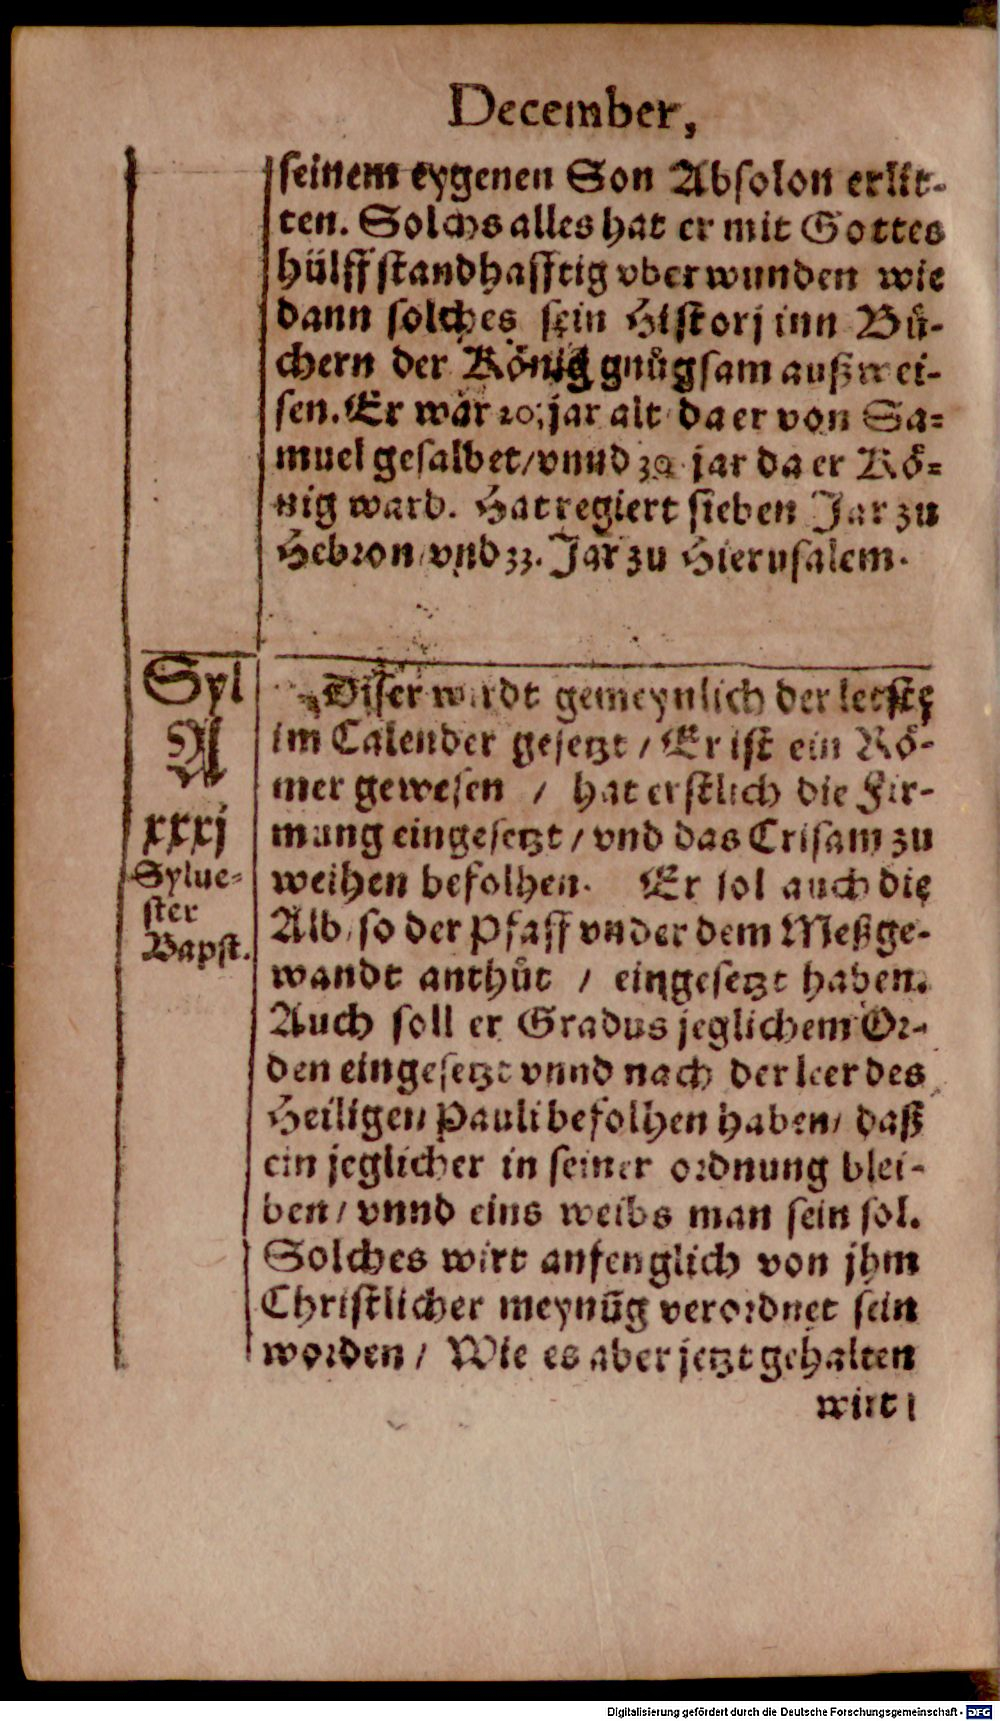 December,
seinem eygenen Son Absolon erlit-
ten. Solchs alles hat er mit Gottes
hülff standhafftig vberwunden wie
dann solches sein Historj inn Bů-
chern der König gnůgsam außwei-
sen. Er war 20. jar alt da er von Sa-
muel gesalbet/vnnd 30 jar da er Kö-
nig ward. Hat regiert sieben Jar zu
Hebron/vnd 33. Jar zu Hierusalem.
Syl
A
xxxj
Sylue-
ster
Bapst.
Diser wirdt gemeynlich der letste
im Calender gesetzt / Er ist ein Rö-
mer gewesen / hat erstlich die Fir-
mung eingesetzt / vnd das Crisam zu
weihen befolhen. Er sol auch die
Alb/so der Pfaff vnder dem Meßge-
wandt anthůt / eingesetzt haben.
Auch soll er Gradus jeglichem Or-
den eingesetzt vnnd nach der leer des
Heiligen Pauli befolhen haben/ daß
ein jeglicher in seiner ordnung blei-
ben/ vnnd eins weibs man sein sol.
Solches wirt anfenglich von jhm
Christlicher meynũg verordnet sein
worden / Wie es aber jetzt gehalten
wirt /
Digitalisierung gefördert durch die Deutsche Forschungsgemeinschaft - DFG